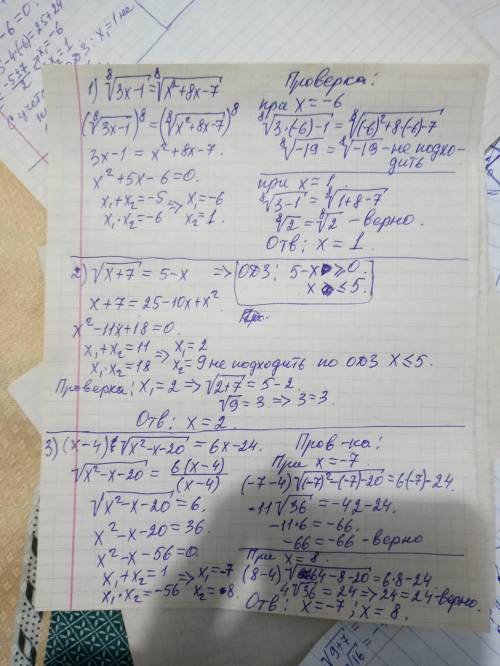 -6=0.
-4·(-6)=25+24
x₁=-6
-5+7
2
x₂=1
x₁ не
1) ⁸√3x-1 = ⁸√x²+8x-7
(⁸√3x-1)⁸ = (⁸√x²+8x-7)⁸
3x-1 = x²+8x-7.
x²+5x-6=0.
x₁+x₂=-5 => x₁=-6
x₁·x₂=-6 x₂=1.
Проверка:
при x=-6
⁸√3·(-6)-1 = ⁸√(-6)²+8·(-6)-7
⁸√-19 = ⁸√-19 - не подхо-
дить
при x=1.
⁸√3-1 = ⁸√1+8-7
⁸√2 = ⁸√2 - верно.
Отв: x=1.
2) √x+7 = 5-x => ОДЗ: 5-x ≥0.
x ≤5.
x+7=25-10x+x²
x²-11x+18=0.
x₁+x₂=11 => x₁=2
x₁·x₂=18 x₂=9 не подходить по ОДЗ x≤5.
Проверка: x₁=2 => √2+7 = 5-2
√9=3 => 3=3.
Отв: x=2.
3) (x-4)√x²-x-20 = 6x-24.
√x²-x-20 = 6(x-4)/(x-4)
√x²-x-20 = 6.
x²-x-20=36.
x²-x-56=0.
x₁+x₂=1 => x₁=-7
x₁·x₂=-56 x₂=8.
Пров-ка:
При x=-7.
(-7-4)√(-7)²-(-7)-20 = 6(-7)-24.
-11√36 = -42-24.
-11·6=-66.
-66=-66-верно
При x=8.
(8-4)√64-8-20 = 6·8-24.
4√36=24 => 24=24-верно.
Отв: x=-7; x=8.
√9+7=
√16=